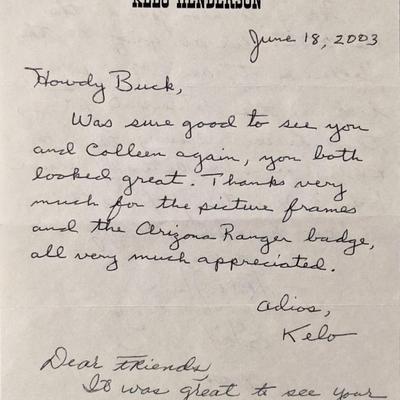 KELO HENDERSON
June 18, 2003
Howdy Buck,
Was sure good to see you
and Colleen again, you both
looked great. Thanks very
much for the picture frames
and the Arizona Ranger badge,
all very much appreciated.
adios,
Kelo
Dear Friends,
It was great to see your